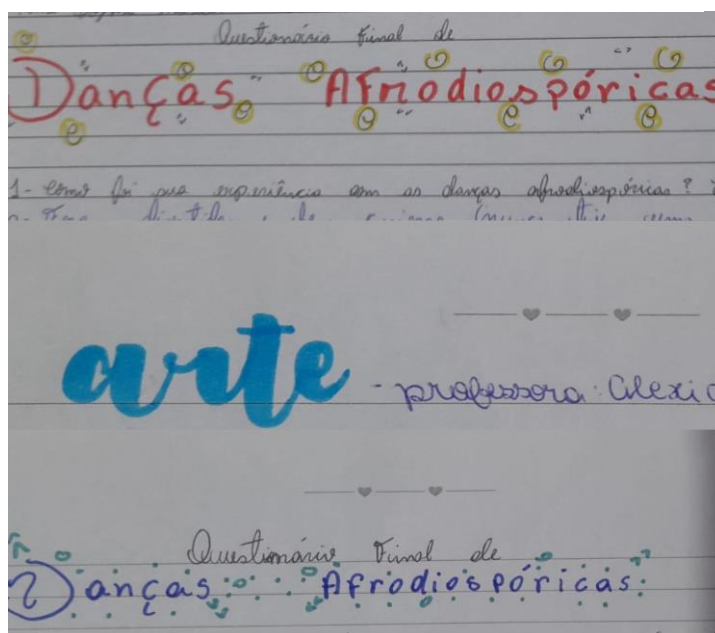 Questionário Final de
Danças Afrodiospóricas
1- Como foi sua experiência com as danças afrodiospóricas?
arte - professora: Alexia
Questionário Final de
Danças Afrodiospóricas